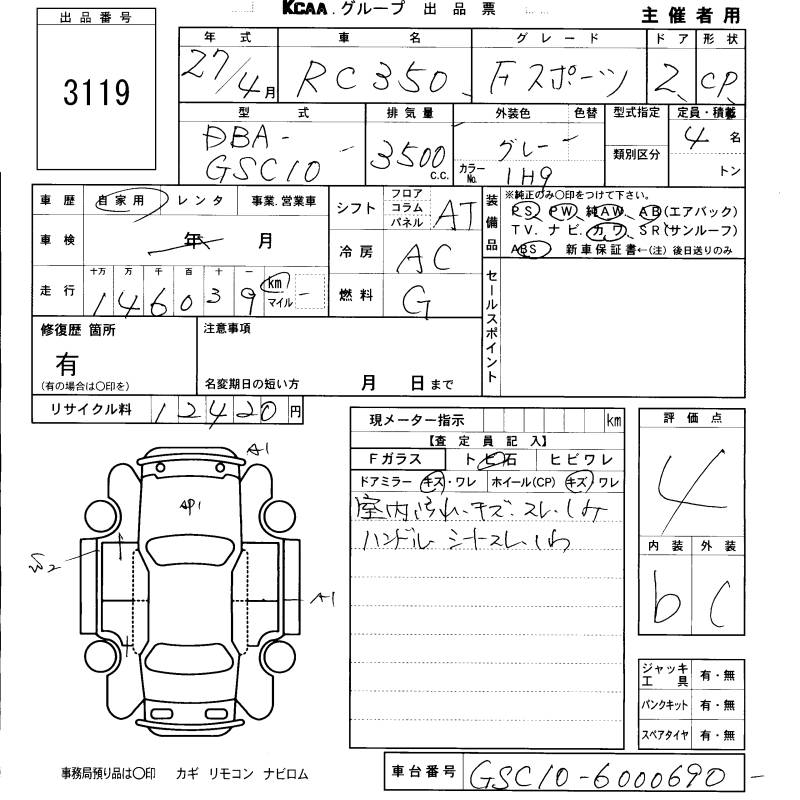 KCAA. グループ 出品票
主催者用
出品番号
3119
年式 車名 グレード ドア 形状
27/4月 RC350 Fスポーツ 2 CP
型式 排気量 外装色 色替 型式指定 定員・積載
DBA-GSC10 3500c.c. グレー 4名
カラーNo. 1H9 類別区分 トン
車歴 自家用 レンタ 事業.営業車
車検 年 月
走行 十万 万 千 百 十 一
146039 km マイル
シフト フロア コラム パネル AT
冷房 AC
燃料 G
装備品
※純正のみ〇印をつけて下さい。
PS、PW、純AW、AB(エアバック)
TV、ナビ、カワ、SR(サンルーフ)
ABS 新車保証書←(注)後日送りのみ
セールスポイント
修復歴 箇所
有
(有の場合は〇印を)
注意事項
名変期日の短い方 月 日まで
リサイクル料 12420円
現メーター指示 km
【査定員記入】
Fガラス トビ石 ヒビワレ
ドアミラー キズ・ワレ ホイール(CP) キズ/ワレ
室内汚れ.キズ.スレ.シミ
ハンドル シートスレ.シわ
評価点
4
内装 外装
b C
A1
AP1
W2
A1
ジャッキ工具 有・無
パンクキット 有・無
スペアタイヤ 有・無
事務局預り品は〇印 カギ リモコン ナビロム
車台番号 GSC10-6000690